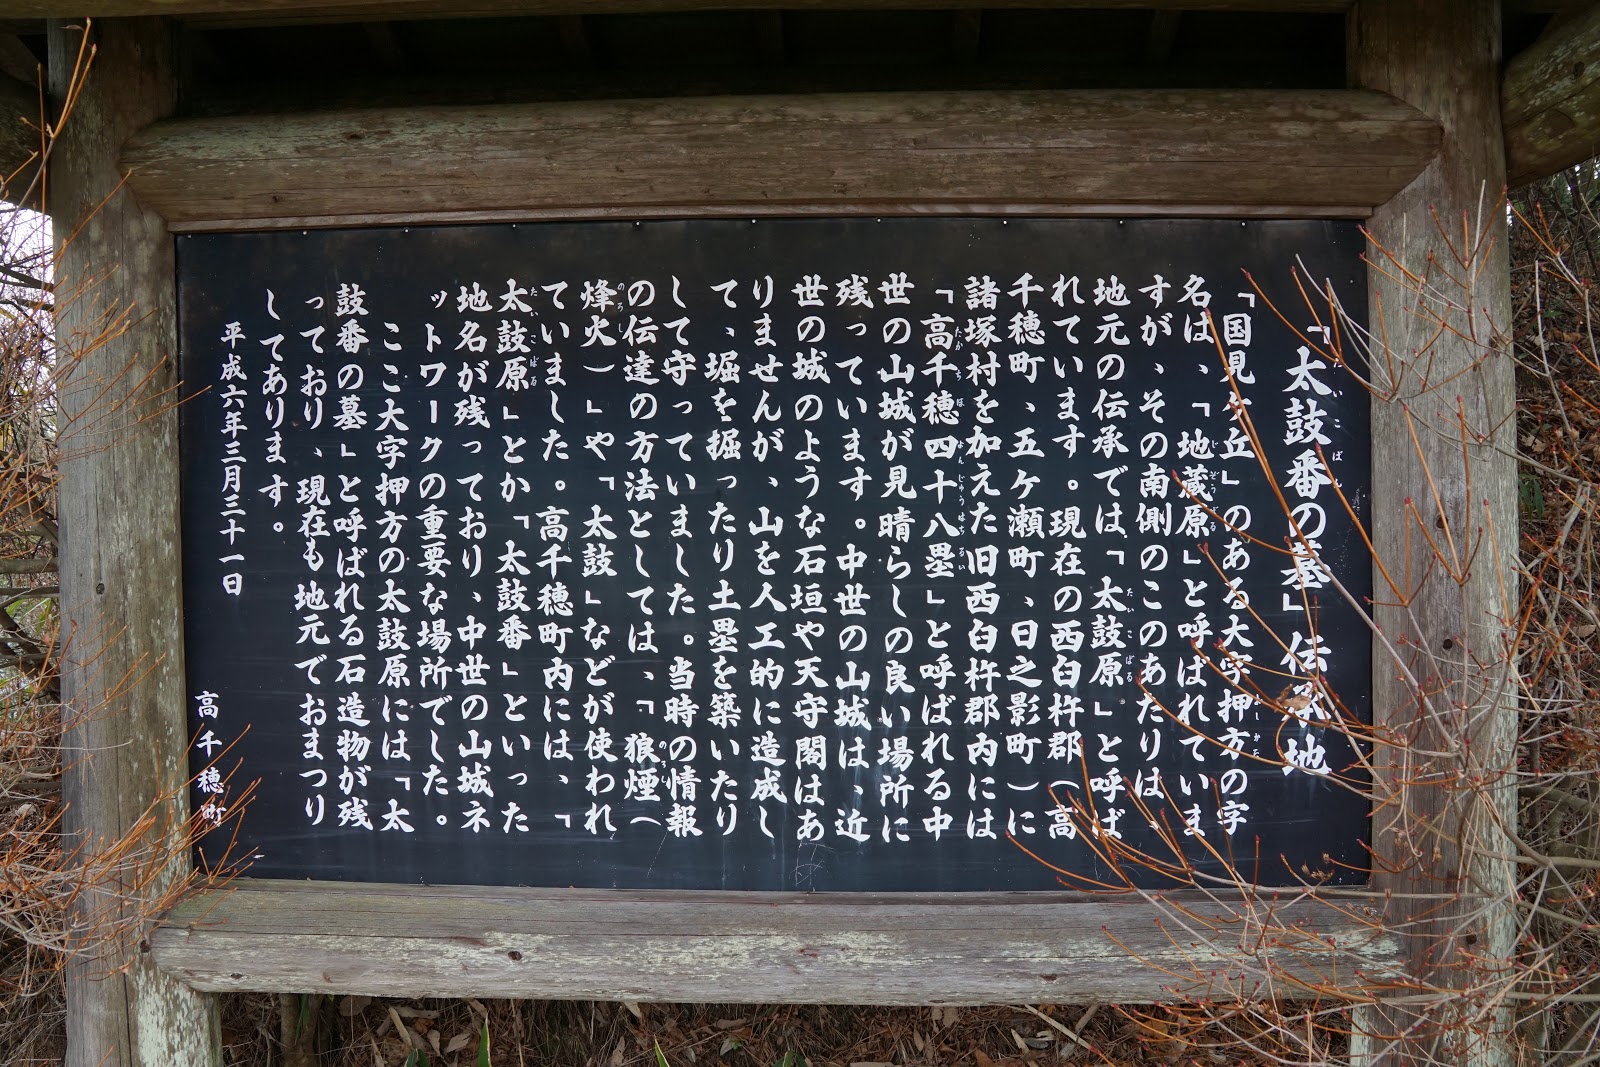 「太鼓番の墓」伝承地
「国見ケ丘」のある大字押方の字
名は、「地蔵原」と呼ばれていま
すが、その南側のこのあたりは、
地元の伝承では「太鼓原」と呼ば
れています。現在の西臼杵郡(高
千穂町、五ケ瀬町、日之影町)に
諸塚村を加えた旧西臼杵郡内には
「高千穂四十八塁」と呼ばれる中
世の山城が見晴らしの良い場所に
残っています。中世の山城は、近
世の城のような石垣や天守閣はあ
りませんが、山を人工的に造成し
て、堀を掘ったり土塁を築いたり
して守っていました。当時の情報
の伝達の方法としては、「狼煙(
烽火)」や「太鼓」などが使われ
ていました。高千穂町内には、「
太鼓原」とか「太鼓番」といった
地名が残っており、中世の山城ネ
ットワークの重要な場所でした。
ここ大字押方の太鼓原には「太
鼓番の墓」と呼ばれる石造物が残
っており、現在も地元でおまつり
してあります。
平成六年三月三十一日
高千穂町